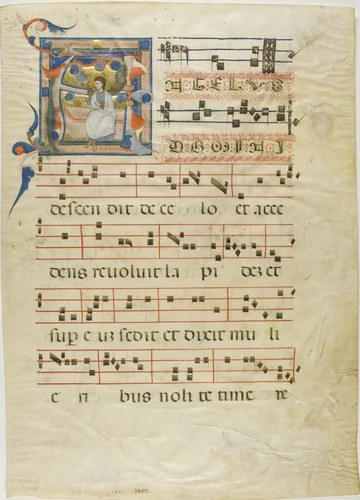 A NGELVS
DOMINI
descen dit de ce lo et acce
dens revolvit la pi dez et
sup e uz sedit et dixit mu li
e ri bus noli te time re